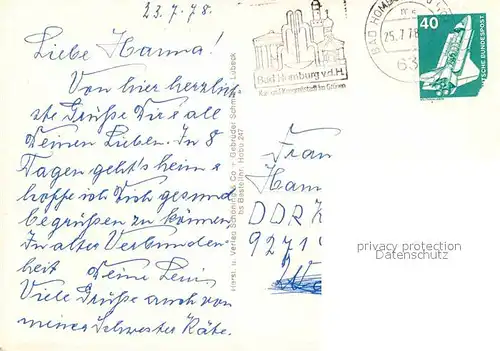 23.7.78.
Liebe Hanna!
Von hier herzlich-
ste Grüße Dir & all
Deinen Lieben. In 8
Tagen geht's heim &
hoffe ich Dich gesund
begrüßen zu können.
In alter Verbunden-
heit Deine Leni.
Viele Grüße auch von
meiner Schwester Käte.
Herst. u. Verlag Schöning & Co + Gebrüder Schmidt, Lübeck
bs Bestellnr. Hobu 247
Bad Homburg v.d.H.
Kur- und Kongreßstadt im Grünen
BAD HOMBURG
25.7.78
63
40
DEUTSCHE BUNDESPOST
Frau
Hann
DDR
9271
privacy protection
Datenschutz